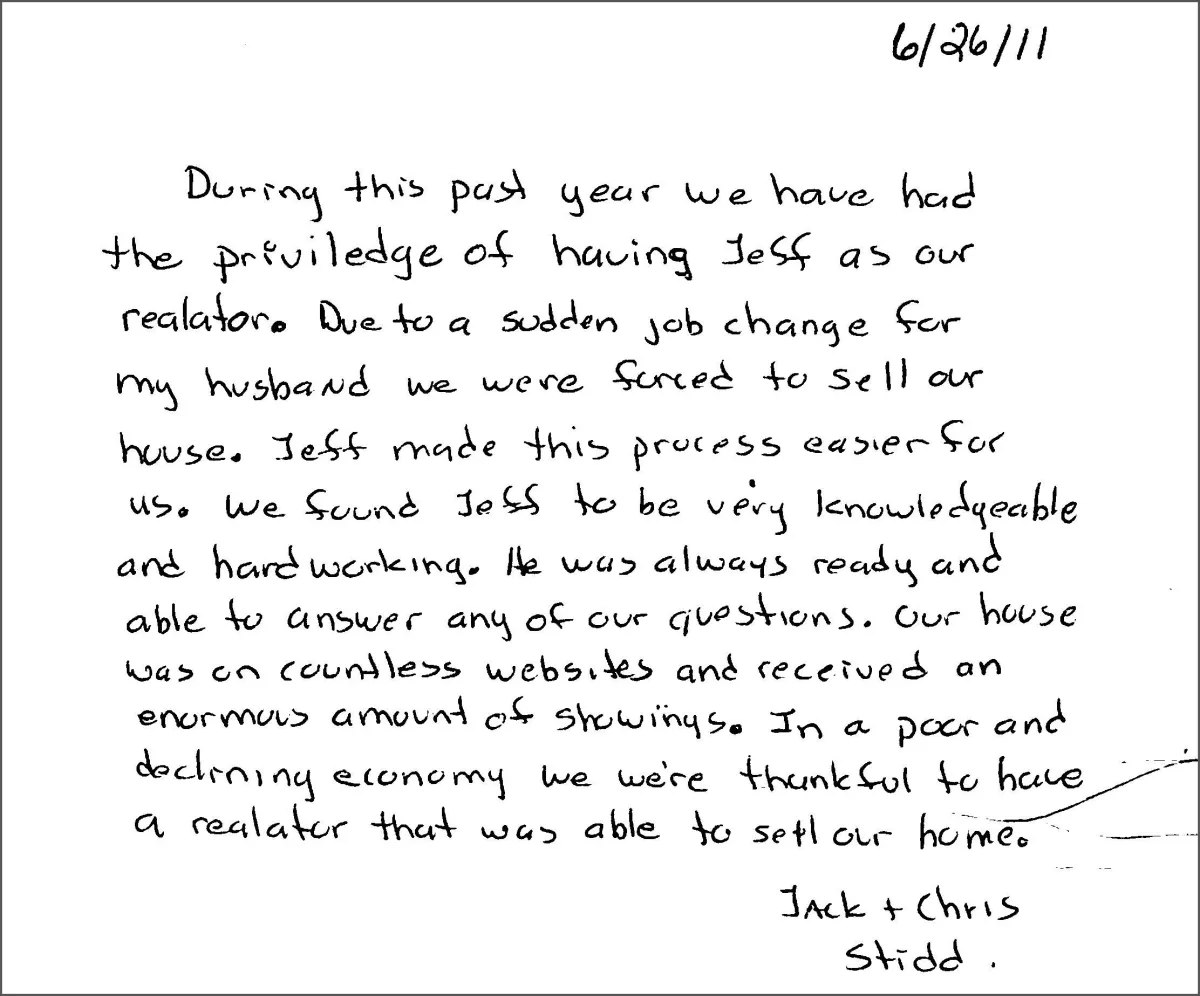 6/26/11
During this past year we have had
the priviledge of having Jeff as our
realator. Due to a sudden job change for
my husband we were forced to sell our
house. Jeff made this process easier for
us. We found Jeff to be very knowledgeable
and hardworking. He was always ready and
able to answer any of our questions. Our house
was on countless websites and received an
enormous amount of showings. In a poor and
declining economy we were thankful to have
a realator that was able to sell our home.
Jack + Chris
Stidd.